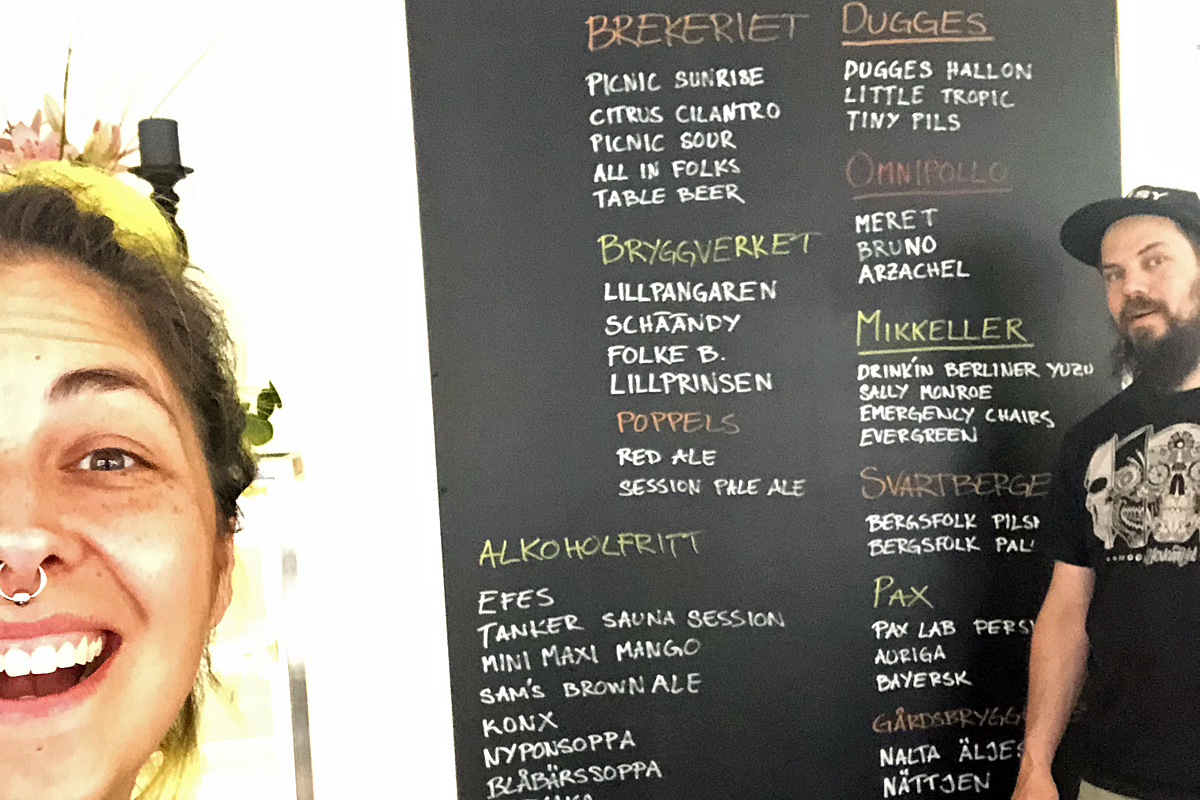 BREKERIET
PICNIC SUNRISE
CITRUS CILANTRO
PICNIC SOUR
ALL IN FOLKS
TABLE BEER
BRYGGVERKET
LILLPANGAREN
SCHÄÄNDY
FOLKE B.
LILLPRINSEN
POPPELS
RED ALE
SESSION PALE ALE
ALKOHOLFRITT
EFES
TANKER SAUNA SESSION
MINI MAXI MANGO
SAM'S BROWN ALE
KONX
NYPONSOPPA
BLÅBÄRSSOPPA
DUGGES
DUGGES HALLON
LITTLE TROPIC
TINY PILS
OMNIPOLLO
MERET
BRUNO
ARZACHEL
MIKKELLER
DRINK'IN BERLINER YUZU
SALLY MONROE
EMERGENCY CHAIRS
EVERGREEN
SVARTBERGE
BERGSFOLK PILS
BERGSFOLK PAL
PAX
PAX LAB PERS
AURIGA
BAYERSK
GÅRDSBRYGG
NALTA ÄLJES
NÄTTJEN